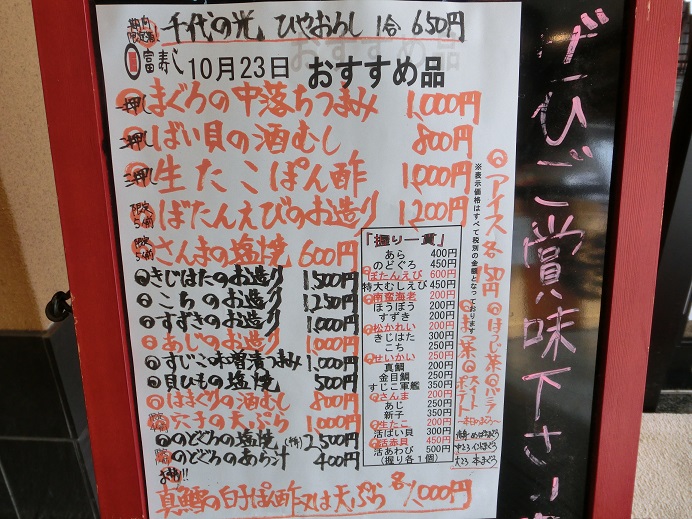 期間限定酒 千代の光 ひやおろし 1合 650円
富寿し 10月23日 おすすめ品
一押し まぐろの中落ちつまみ 1,000円
二押し ばい貝の酒むし 800円
三押し 生たこぽん酢 1,000円
限定5個 ぼたんえびのお造り 1,200円
限定5個 さんまの塩焼 600円
きじはたのお造り 1,500円
こちのお造り 1,250円
すずきのお造り 1,000円
あじのお造り 1,000円
すじこ味噌漬つまみ 1,000円
貝ひもの塩焼 500円
はまぐりの酒むし 800円
穴子の天ぷら 1,000円
のどぐろの塩焼(特) 2,500円
のどぐろのあら汁 400円
真鱈の白子ぽん酢又は天ぷら 各1,000円
「握り一貫」
あら 400円
のどぐろ 450円
ぼたんえび 600円
特大むしえび 450円
南蛮海老 200円
ほうぼう 200円
すずき 200円
松かれい 200円
きじはた 300円
こち 250円
せいかい 250円
真鯛 200円
金目鯛 250円
すじこ軍艦 350円
さんま 200円
あじ 250円
新子 350円
生たこ 200円
活ばい貝 300円
活赤貝 450円
活あわび 500円
(握り各1個)
※表示価格はすべて税別の金額となっております
アイス各150円
ほうじ茶 バニラ
抹茶 スイートポテト
〜本日のまぐろ〜
中とろ インドまぐろ
大とろ 本まぐろ
ぜひご賞味下さい